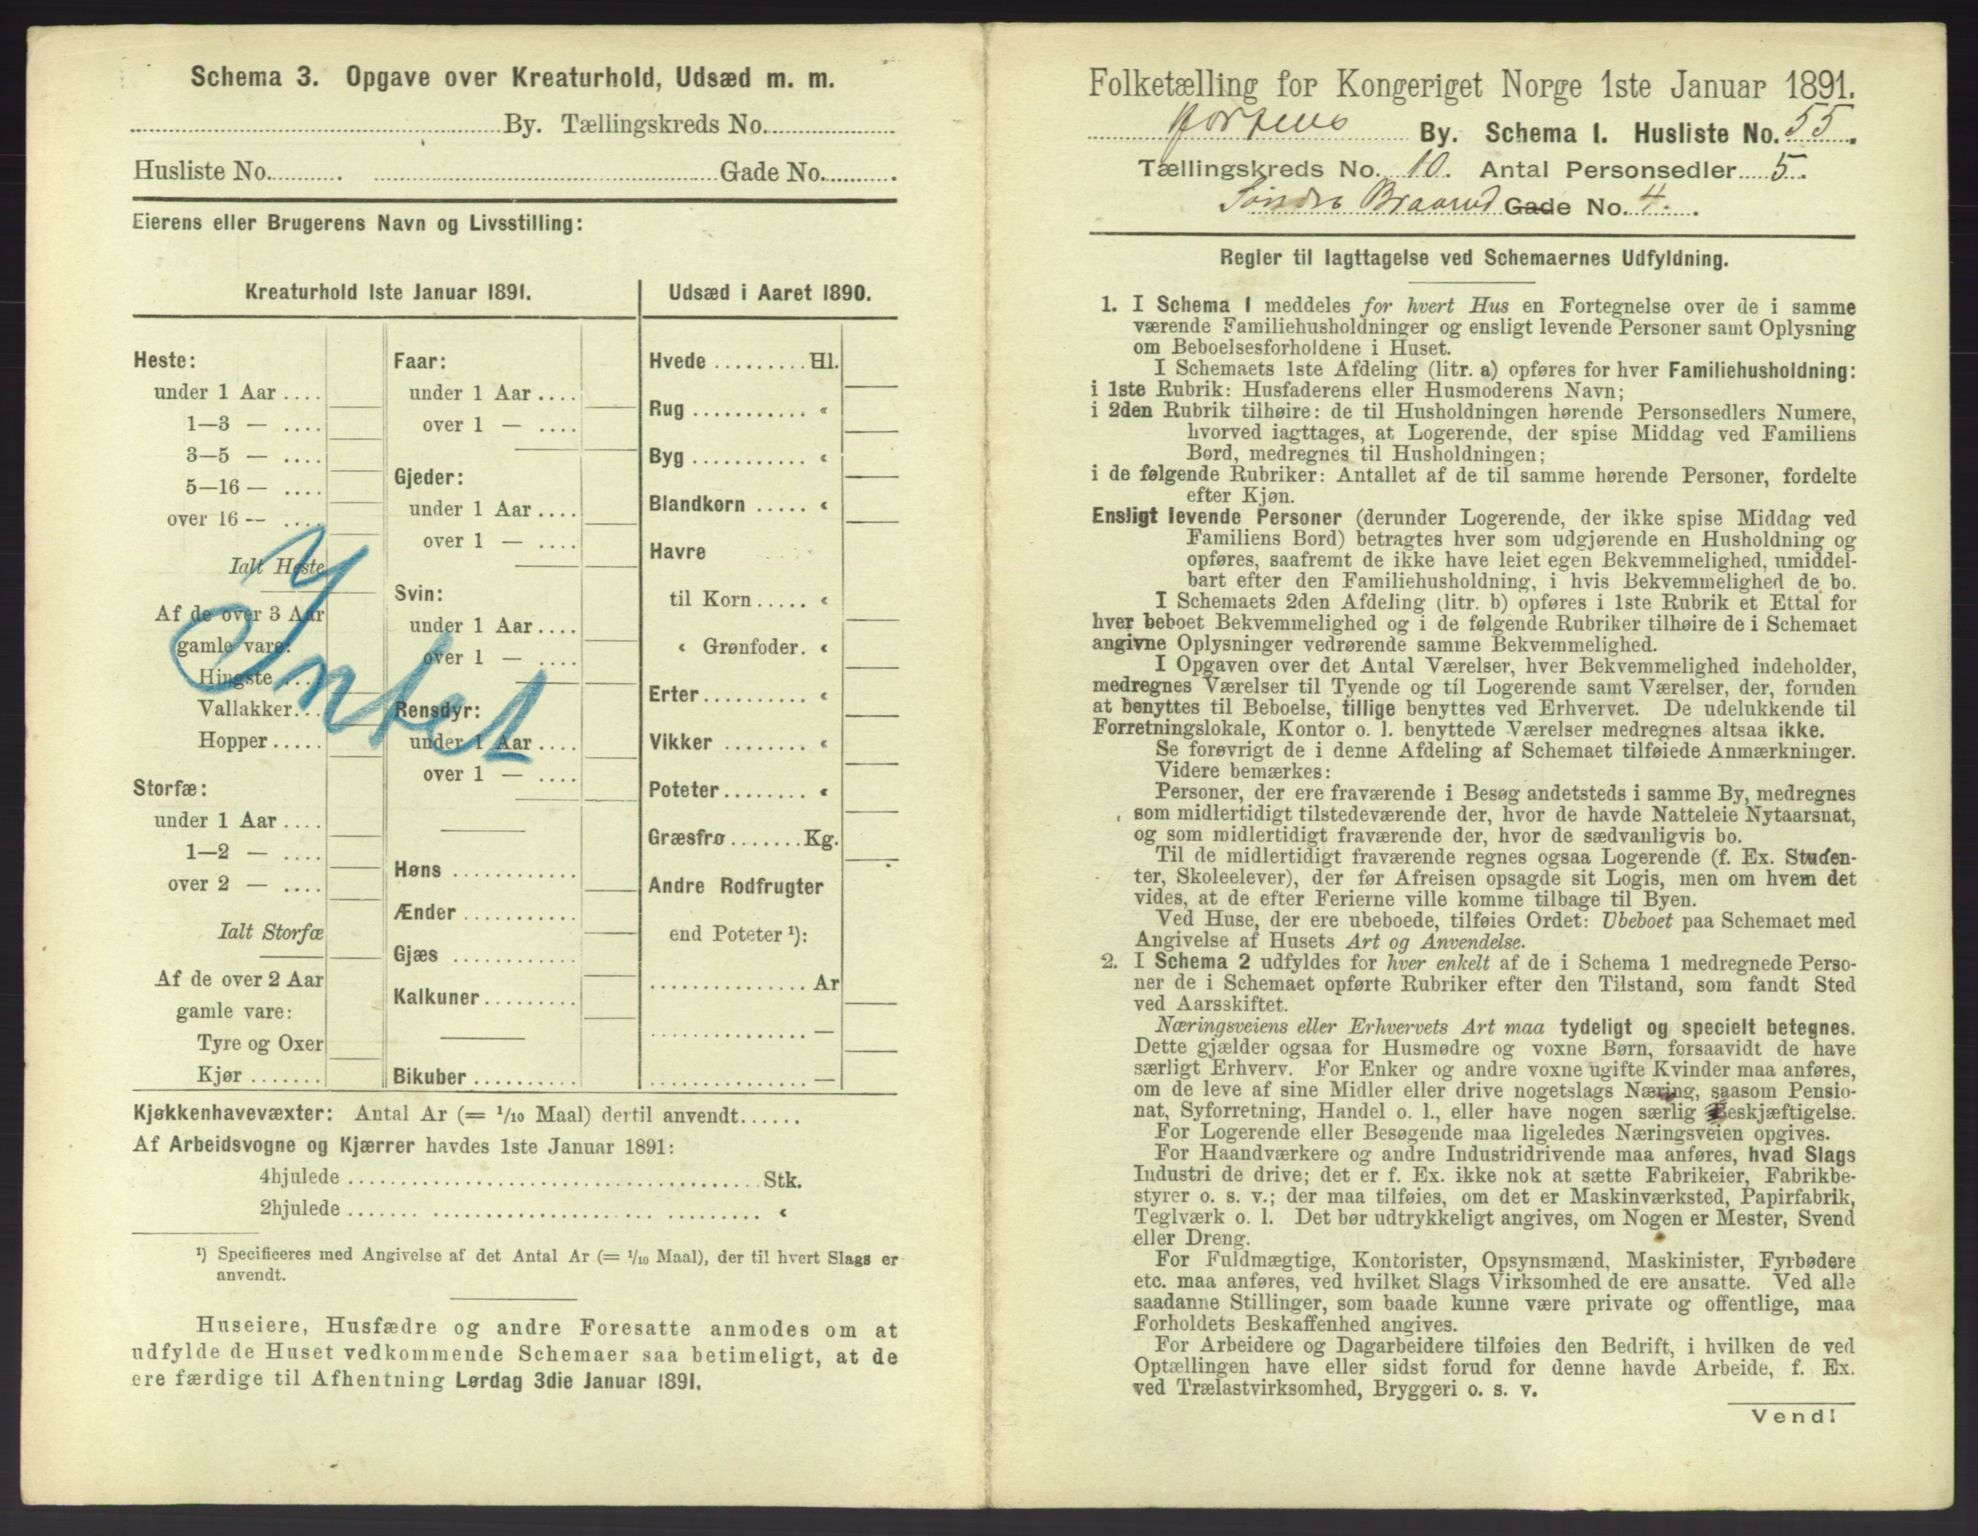 Schema 3. Opgave over Kreaturhold, Udsæd m. m.
By. Tællingskreds No.
Husliste No. Gade No.
Eierens eller Brugerens Navn og Livsstilling:
Kreaturhold 1ste Januar 1891.
Heste:
under 1 Aar
1—3 —
3—5 —
5—16 —
over 16 —
Ialt Heste
Af de over 3 Aar
gamle vare:
Hingste
Vallakker
Hopper
Storfæ:
under 1 Aar
1—2 —
over 2 —
Ialt Storfæ
Af de over 2 Aar
gamle vare:
Tyre og Oxer
Kjør
Intet
Faar:
under 1 Aar
over 1 —
Gjeder:
under 1 Aar
over 1 —
Svin:
under 1 Aar
over 1 —
Rensdyr:
under 1 Aar
over 1 —
Høns
Ænder
Gjæs
Kalkuner
Bikuber
Udsæd i Aaret 1890.
Hvede Hl.
Rug "
Byg "
Blandkorn "
Havre
til Korn "
" Grønfoder. "
Erter "
Vikker "
Poteter "
Græsfrø Kg.
Andre Rodfrugter
end Poteter ¹):
Ar
—
—
Kjøkkenhavevæxter: Antal Ar (= 1/10 Maal) dertil anvendt
Af Arbeidsvogne og Kjærrer havdes 1ste Januar 1891:
4hjulede Stk.
2hjulede "
¹) Specificeres med Angivelse af det Antal Ar (= 1/10 Maal), der til hvert Slags er
anvendt.
Huseiere, Husfædre og andre Foresatte anmodes om at
udfylde de Huset vedkommende Schemaer saa betimeligt, at de
ere færdige til Afhentning Lørdag 3die Januar 1891.
Folketælling for Kongeriget Norge 1ste Januar 1891.
Hortens By. Schema 1. Husliste No. 55.
Tællingskreds No. 10. Antal Personsedler 5.
Søndre Braarud Gade No. 4.
Regler til Iagttagelse ved Schemaernes Udfyldning.
1. I Schema 1 meddeles for hvert Hus en Fortegnelse over de i samme
værende Familiehusholdninger og ensligt levende Personer samt Oplysning
om Beboelsesforholdene i Huset.
I Schemaets 1ste Afdeling (litr. a) opføres for hver Familiehusholdning:
i 1ste Rubrik: Husfaderens eller Husmoderens Navn;
i 2den Rubrik tilhøire: de til Husholdningen hørende Personsedlers Numere,
hvorved iagttages, at Logerende, der spise Middag ved Familiens
Bord, medregnes til Husholdningen;
i de følgende Rubriker: Antallet af de til samme hørende Personer, fordelte
efter Kjøn.
Ensligt levende Personer (derunder Logerende, der ikke spise Middag ved
Familiens Bord) betragtes hver som udgjørende en Husholdning og
opføres, saafremt de ikke have leiet egen Bekvemmelighed, umiddel-
bart efter den Familiehusholdning, i hvis Bekvemmelighed de bo.
I Schemaets 2den Afdeling (litr. b) opføres i 1ste Rubrik et Ettal for
hver beboet Bekvemmelighed og i de følgende Rubriker tilhøire de i Schemaet
angivne Oplysninger vedrørende samme Bekvemmelighed.
I Opgaven over det Antal Værelser, hver Bekvemmelighed indeholder,
medregnes Værelser til Tyende og til Logerende samt Værelser, der, foruden
at benyttes til Beboelse, tillige benyttes ved Erhvervet. De udelukkende til
Forretningslokale, Kontor o. l. benyttede Værelser medregnes altsaa ikke.
Se forøvrigt de i denne Afdeling af Schemaet tilføiede Anmærkninger.
Videre bemærkes:
Personer, der ere fraværende i Besøg andetsteds i samme By, medregnes
som midlertidigt tilstedeværende der, hvor de havde Natteleie Nytaarsnat,
og som midlertidigt fraværende der, hvor de sædvanligvis bo.
Til de midlertidigt fraværende regnes ogsaa Logerende (f. Ex. Studen-
ter, Skoleelever), der før Afreisen opsagde sit Logis, men om hvem det
vides, at de efter Ferierne ville komme tilbage til Byen.
Ved Huse, der ere ubeboede, tilføies Ordet: Ubeboet paa Schemaet med
Angivelse af Husets Art og Anvendelse.
2. I Schema 2 udfyldes for hver enkelt af de i Schema 1 medregnede Perso-
ner de i Schemaet opførte Rubriker efter den Tilstand, som fandt Sted
ved Aarsskiftet.
Næringsveiens eller Erhvervets Art maa tydeligt og specielt betegnes.
Dette gjælder ogsaa for Husmødre og voxne Børn, forsaavidt de have
særligt Erhverv. For Enker og andre voxne ugifte Kvinder maa anføres,
om de leve af sine Midler eller drive nogetslags Næring, saasom Pensio-
nat, Syforretning, Handel o. l., eller have nogen særlig Beskjæftigelse.
For Logerende eller Besøgende maa ligeledes Næringsveien opgives.
For Haandværkere og andre Industridrivende maa anføres, hvad Slags
Industri de drive; det er f. Ex. ikke nok at sætte Fabrikeier, Fabrikbe-
styrer o. s. v.; der maa tilføies, om det er Maskinværksted, Papirfabrik,
Teglværk o. l. Det bør udtrykkeligt angives, om Nogen er Mester, Svend
eller Dreng.
For Fuldmægtige, Kontorister, Opsynsmænd, Maskinister, Fyrbødere
etc. maa anføres, ved hvilket Slags Virksomhed de ere ansatte. Ved alle
saadanne Stillinger, som baade kunne være private og offentlige, maa
Forholdets Beskaffenhed angives.
For Arbeidere og Dagarbeidere tilføies den Bedrift, i hvilken de ved
Optællingen have eller sidst forud for denne havde Arbeide, f. Ex.
ved Trælastvirksomhed, Bryggeri o. s. v.
Vend!